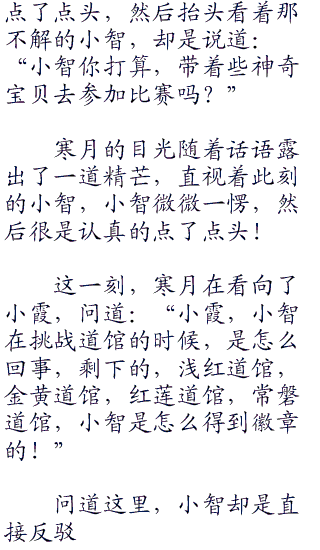 点了点头，然后抬头看着那
不解的小智，却是说道：
“小智你打算，带着些神奇
宝贝去参加比赛吗？”
寒月的目光随着话语露
出了一道精芒，直视着此刻
的小智，小智微微一愣，然
后很是认真的点了点头！
这一刻，寒月在看向了
小霞，问道：“小霞，小智
在挑战道馆的时候，是怎么
回事，剩下的，浅红道馆，
金黄道馆，红莲道馆，常磐
道馆，小智是怎么得到徽章
的！”
问道这里，小智却是直
接反驳